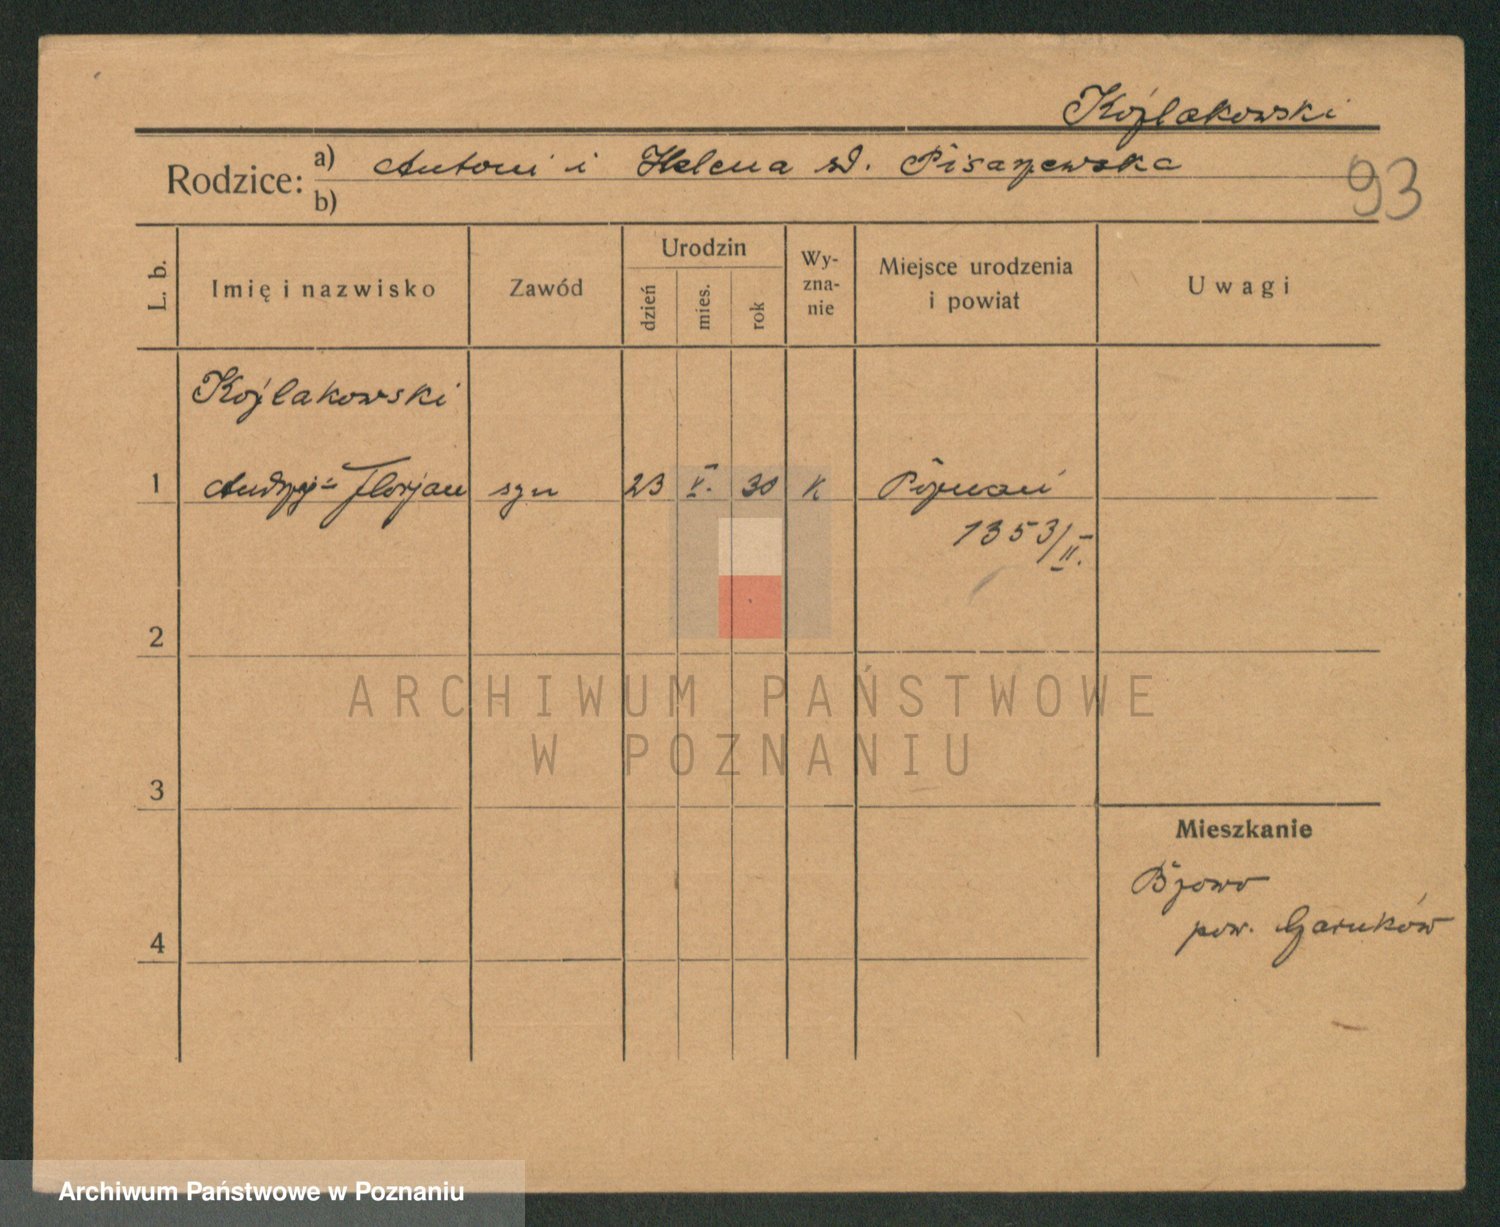 Koźlakowski
Rodzice: a) Antoni i Helena zd. Pisarzewska
93
b)
L. b.
Imię i nazwisko
Zawód
Urodzin
dzień
mies.
rok
Wy-
zna-
nie
Miejsce urodzenia
i powiat
Uwagi
Koźlakowski
1 Andrzej=Florjan syn 23 V. 30 k Poznań
1353/II.
2
3
4
Mieszkanie
Bzowo
pow. Czarnków
ARCHIWUM PAŃSTWOWE
W POZNANIU
Archiwum Państwowe w Poznaniu